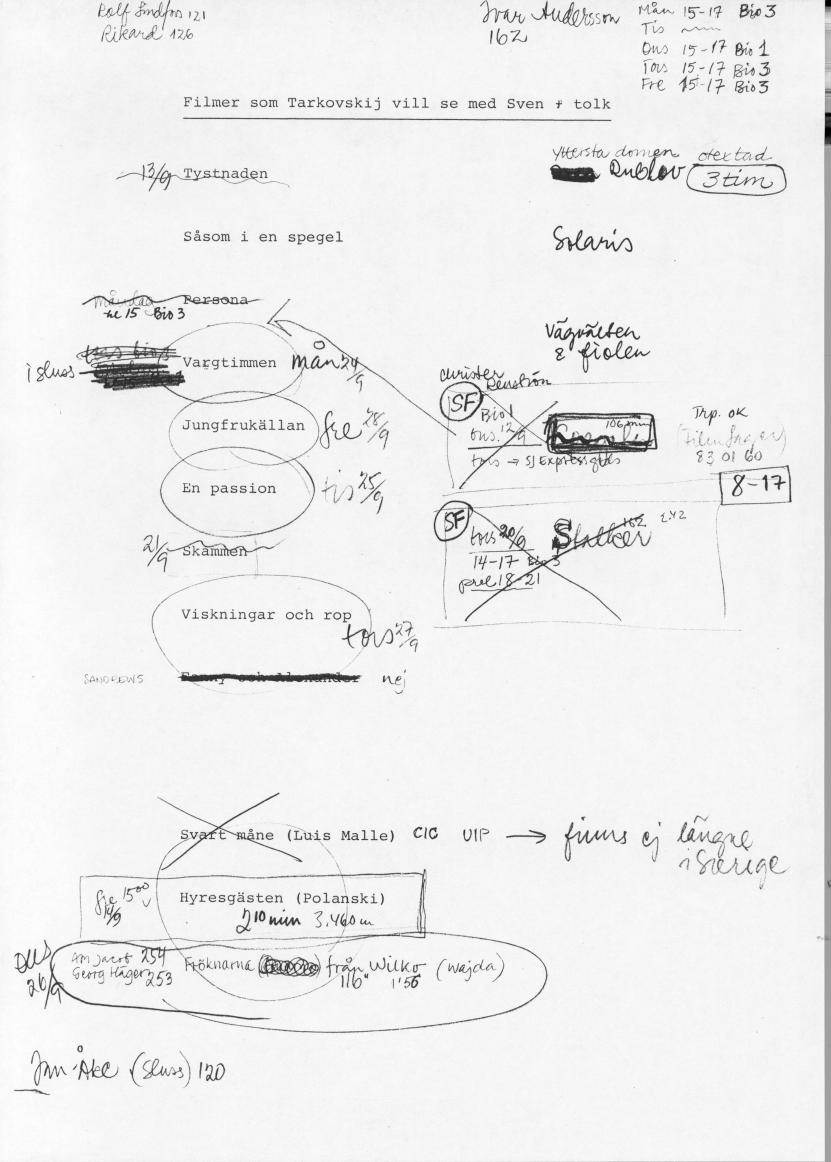 Rolf Lindfors 121
Rikard 126
Ivar Andersson
162
Mån 15-17 Bio 3
Tis
Ons 15-17 Bio 1
Tors 15-17 Bio 3
Fre 15-17 Bio 3
Filmer som Tarkovskij vill se med Sven + tolk
13/9 Tystnaden
Yttersta domen otextad
Rublov 3 tim
Såsom i en spegel
Solaris
måndag Persona
kl 15 Bio 3
Vägvälten
& fiolen
i sluss
Vargtimmen mån 24/9
Christer
SF
Bio 1
ons. 12/9
106 min
tors → SJ Expressgods
Trp. ok
83 01 60
8-17
Jungfrukällan fre 28/9
En passion tis 25/9
SF
tors 20/9 Stalker 162 2.42
14-17 Bio 3
prel 18-21
21/9 Skammen
Viskningar och rop
tors 27/9
SANDREWS Fanny och Alexander nej
Svart måne (Luis Malle) CIC UIP → finns ej längre
i Sverige
fre 14/9 15 00
Hyresgästen (Polanski)
210 min 3.460 m
Ons 26/9
254
Georg 253
Fröknarna från Wilko (Wajda)
116" 1'56
Jan-Åke (Sluss) 120